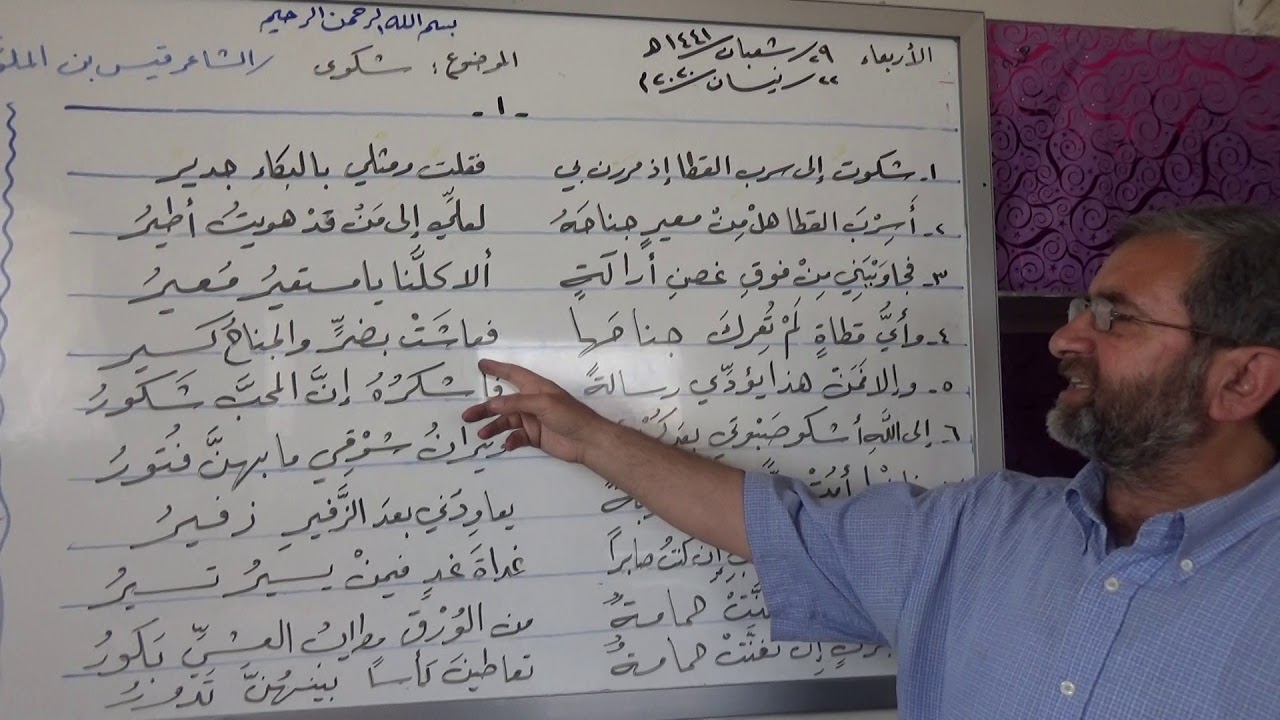 بسم الله الرحمن الرحيم
الأربعاء ٢٩/شعبان/١٤٤١هـ الموضوع: شكوى الشاعر قيس بن الملو
٢٢/نيسان/٢٠٢٠م
-١-
١- شكوت إلى سرب القطا إذ مررن بي فقلت ومثلي بالبكاء جدير
٢- أَسِرْبَ القطا هل مِنْ معيرٍ جناحَهُ لعلِّي إلى مَنْ قَدْ هويتُ أطيرُ
٣- فجاوَبْنَني مِنْ فوقِ غصنِ أراكَةٍ ألا كلُّنا يا مستعيرُ مُعيرُ
٤- وأيُّ قطاةٍ لَمْ تُعِركَ جناحَها فعاشَتْ بضرٍّ والجناحُ كسيرُ
٥- وإلا فَمَنْ هذا يؤدِّي رسالةً فاشكرُهُ إنَّ المحبَّ شكورُ
٦- إلى اللَّهِ أشكو صَبْوتي بعدَ ونيرانُ شوْقي ما بهنَّ فُتورُ
يعاوِدُني بعدَ الزَّفيرِ زفيرُ
إن كنتُ صابراً غداةَ غدٍ فيمنْ يسيرُ تسيرُ
حمامةٌ من الوُرْقِ مطرابُ العشيِّ بَكورُ
إن تغنَّتْ حمامةٌ تعاطينَ كأساً بينهُنَّ تَدورُ